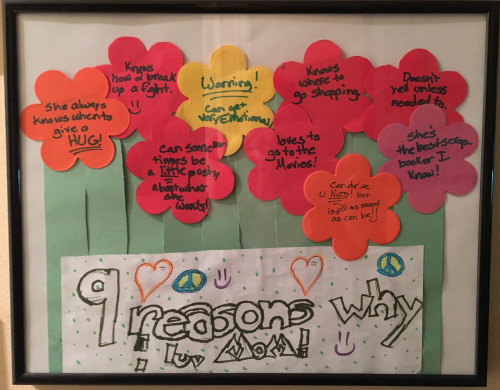 She always
knows when to
give a
HUG!
Knows
how 2 break
up a fight.
Warning!
Can get
very Emotional!
Knows
where to
go shopping.
Doesn't
yell unless
needed to.
can some
times be
a little pushy
about what
she
wants!
loves to
go to the
Movies!
Can drive
u Nuts! but
is still as sweet
as can be!!
she's
the best scrap-
booker I
Know!
9 reasons why
i luv Mom!